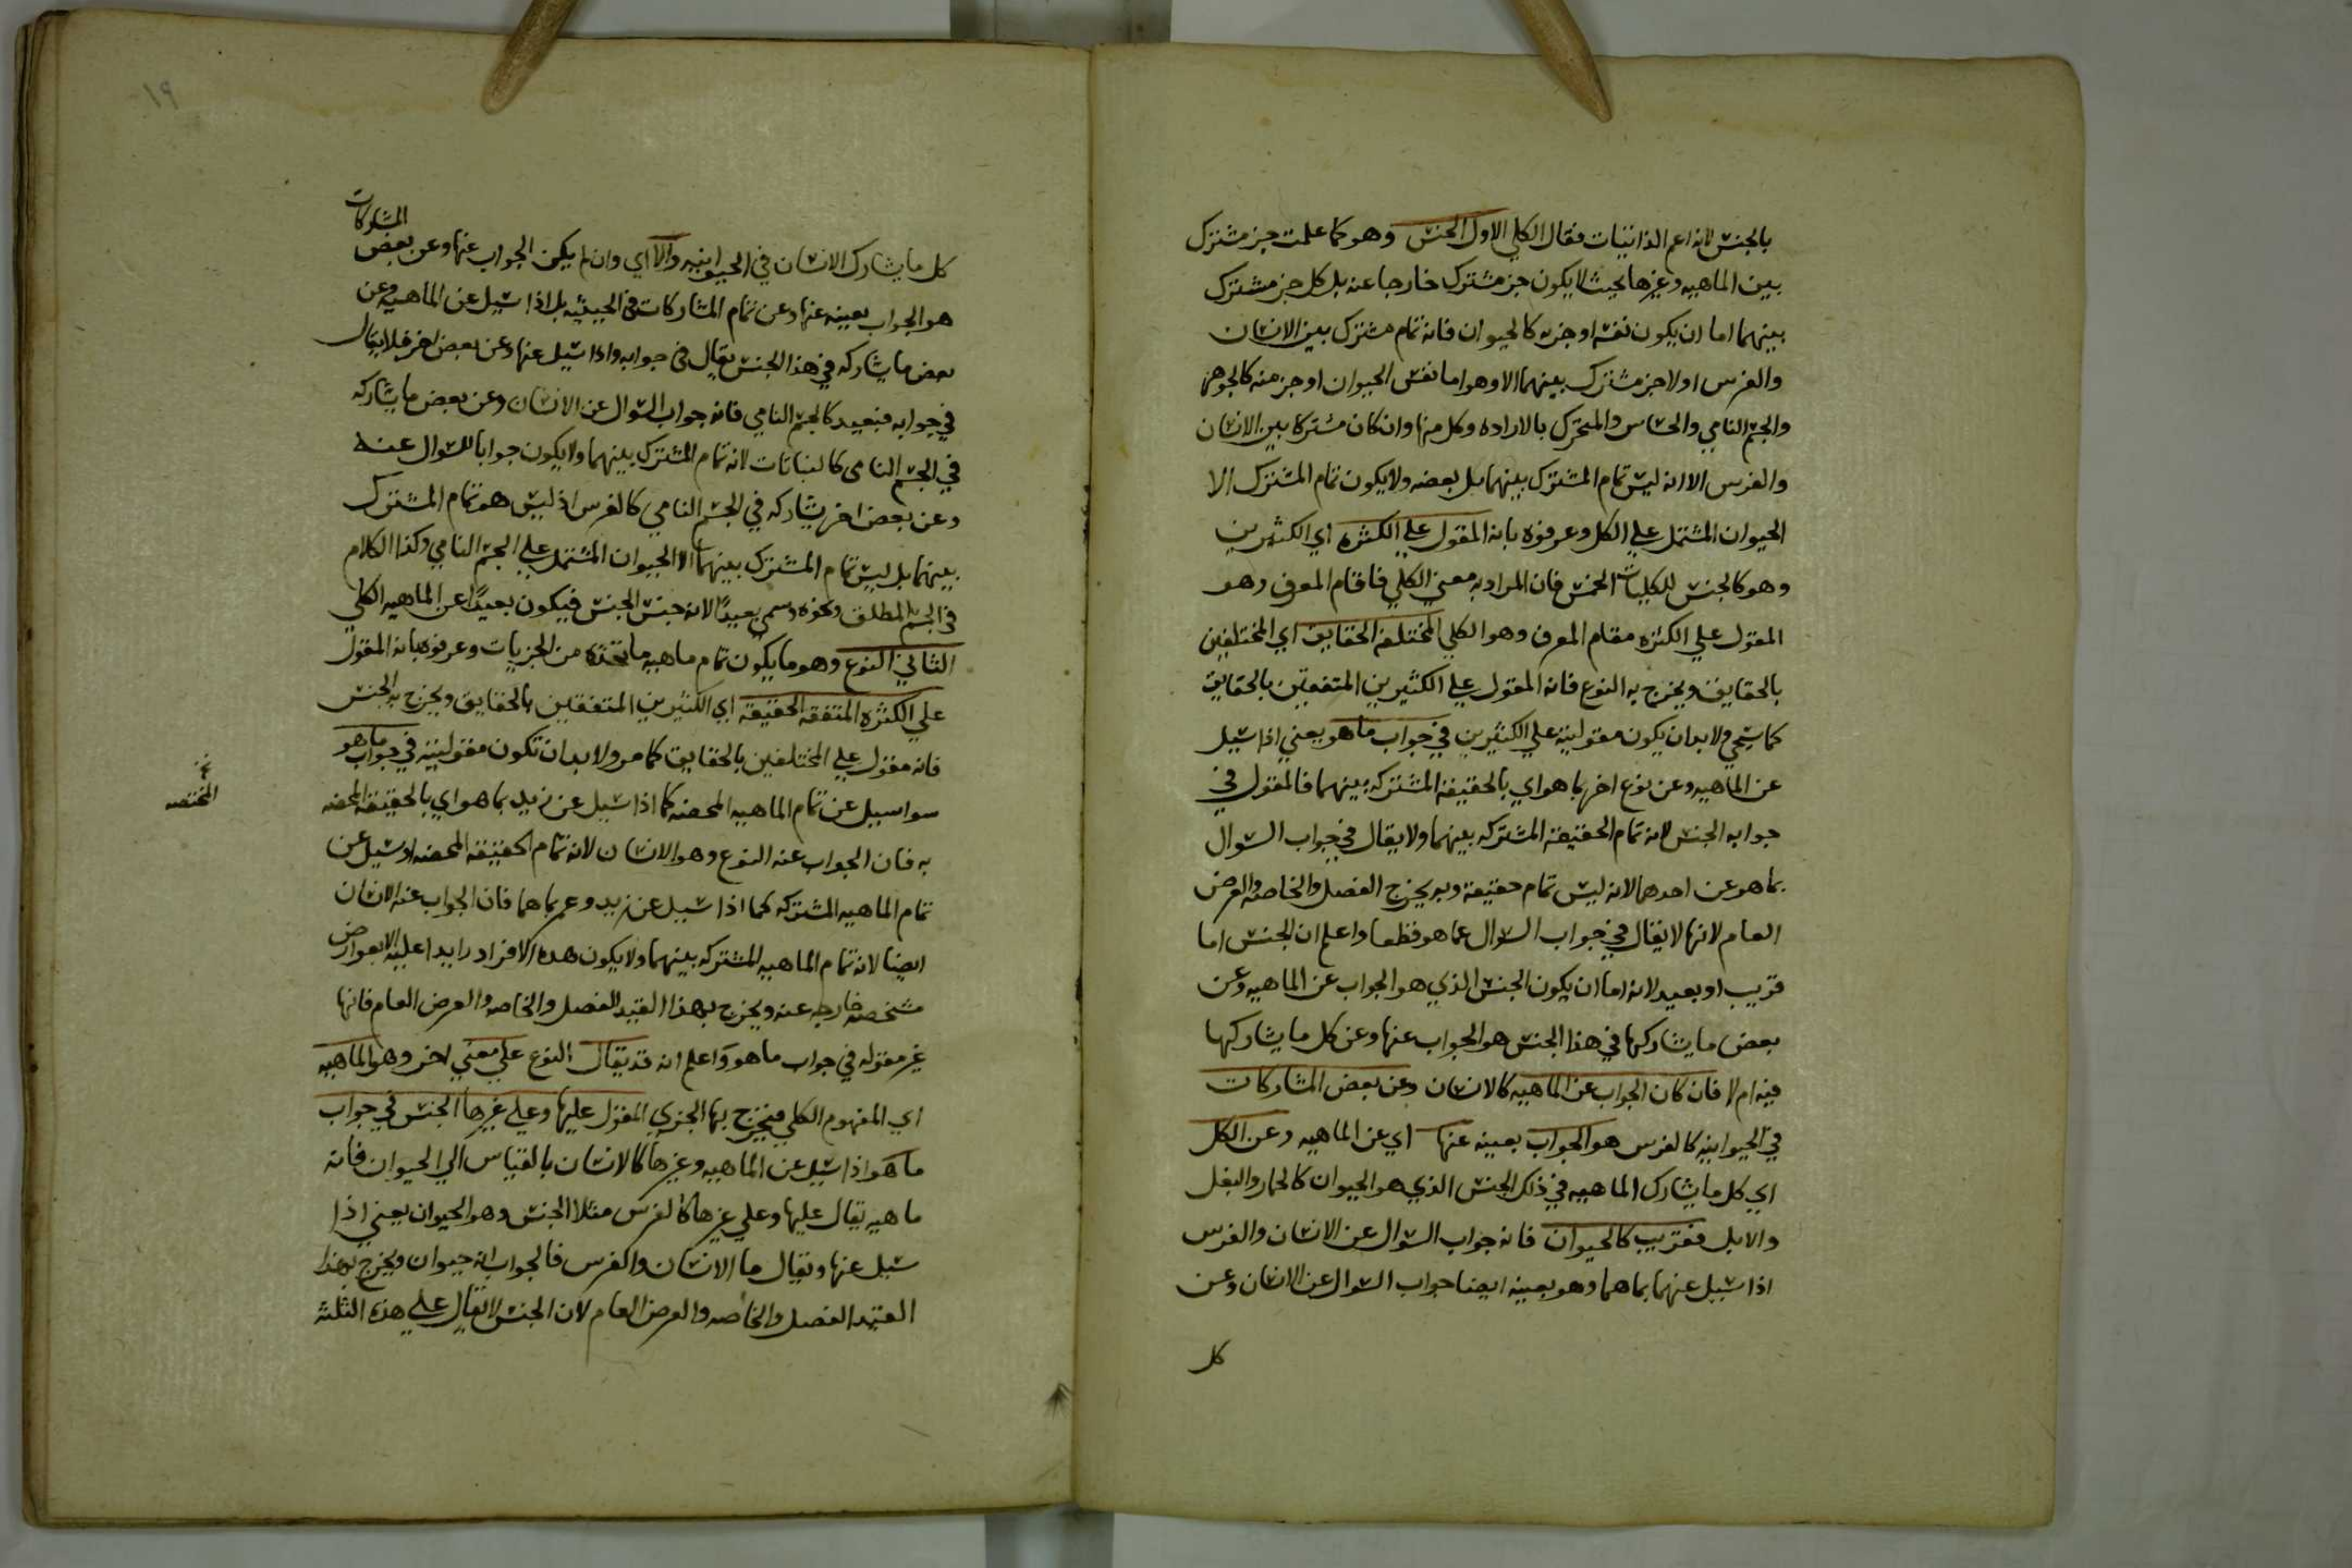 بالجنس لانه اعم الذاتيات فقال الكلي الاول الجنس وهو كما علمت جز مشترك
بين الماهيه وغيرها بحيث لا يكون جز مشترك خارجا عنه بل كل جز مشترك
بينهما اما ان يكون نفسه او جزه كالحيوان فانه تمام مشترك بين الانسان
والفرس اولا جز مشترك بينهما الا وهو اما نفس الحيوان او جز منه كالجوهر
والجسم النامي والحساس والمتحرك بالاراده وكل منها وان كان مشتركا بين الانسان
والفرس الا انه ليس تمام المشترك بينهما بل بعضه ولا يكون تمام المشترك الا
الحيوان المشتمل علي الكل وعرفوه بانه المقول علي الكثره اي الكثيرين
وهو كالجنس للكليات الخمس فان المراد به معني الكلي فاقام المعرف وهو
المقول علي الكثره مقام المعرف وهو الكلي المختلفة الحقايق اي المختلفين
بالحقايق ويخرج به النوع فانه المقول علي الكثيرين المتفقين بالحقايق
كما سيجي ولا بد ان يكون مقوليته علي الكثيرين في جواب ما هو يعني اذا سيل
عن الماهيه وعن نوع اخر بما هو اي بالحقيقة المشتركه بينهما فالمقول في
جوابه الجنس لانه تمام الحقيقة المشتركه بينهما ولا يقال في جواب السوال
بما هو عن احدهما لانه ليس تمام حقيقة وبه يخرج الفصل والخاصه والعرض
العام لانها لا يقال في جواب السوال عما هو قطعا واعلم ان الجنس اما
قريب او بعيد لانه اما ان يكون الجنس الذي هو الجواب عن الماهيه وعن
بعض ما يشاركها في هذا الجنس هو الجواب عنها وعن كل ما يشاركها
فيه ام لا فان كان الجواب عن الماهيه كالانسان وعن بعض المشاركات
في الحيوانيه كالفرس هو الجواب بعينه عنها اي عن الماهيه وعن الكل
اي كل ما يشارك الماهيه في ذلك الجنس الذي هو الحيوان كالحمار والبغل
والابل فقريب كالحيوان فانه جواب السوال عن الانسان والفرس
اذا سيل عنهما بما هما وهو بعينه ايضا جواب السوال عن الانسان وعن
كل
١٩
المشاركات
كل ما يشارك الانسان في الحيوانيه والا اي وان لم يكن الجواب عنها وعن بعض
هو الجواب بعينه عنها وعن تمام المشاركات في الحيثيه بل اذا سيل عن الماهيه وعن
بعض ما يشاركه في هذا الجنس يقال في جوابه واذا سيل عنها وعن بعض اخر فلا يقال
في جوابه فبعيد كالجسم النامي فانه جواب السوال عن الانسان وعن بعض ما يشاركه
في الجسم النامي كالنباتات لانه تمام المشترك بينهما ولا يكون جوابا للسوال عنه
وعن بعض اخر يشاركه في الجسم النامي كالفرس اذ ليس هو تمام المشترك
بينهما بل ليس تمام المشترك بينهما الا الحيوان المشتمل علي الجسم النامي وكذا الكلام
في الجسم المطلق ونحوه وسمي بعيدًا لانه جنس الجنس فيكون بعيدًا عن الماهيه الكلي
الثاني النوع وهو ما يكون تمام ماهيه ما تحته من الجزيات وعرفوه بانه المقول
علي الكثره المتفقه الحقيقة اي الكثيرين المتفقين بالحقايق ويخرج به الجنس
فانه مقول علي المختلفين بالحقايق كما مر ولا بد ان تكون مقوليته في جواب ما هو
سوا سيل عن تمام الماهيه المحضه كما اذا سيل عن زيد بما هو اي بالحقيقة المحضه
المختصه
به فان الجواب عنه النوع وهو الانسان لانه تمام الحقيقة المحضه او سيل عن
تمام الماهيه المشتركه كما اذا سيل عن زيد وعمر بما هما فان الجواب عنه الانسان
ايضا لانه تمام الماهيه المشتركه بينهما ولا يكون هذه الافراد زايدا عليه الا بعوارض
مشخصه خارجه عنه ويخرج بهذا القيد الفصل والخاصه والعرض العام فانها
غير مقوله في جواب ما هو واعلم انه قد يقال النوع علي معني اخر وهو الماهيه
اي المفهوم الكلي فيخرج بها الجزي المقول عليها وعلي غيرها الجنس في جواب
ما هو اذا سيل عن الماهيه وغيرها كالانسان بالقياس الي الحيوان فانه
ماهيه يقال عليها وعلي غيرها كالفرس مثلا الجنس وهو الحيوان يعني اذا
سيل عنها ويقال ما الانسان والفرس فالجواب انه حيوان ويخرج بهذا
القيد الفصل والخاصه والعرض العام لان الجنس لا يقال علي هذه الثلثه